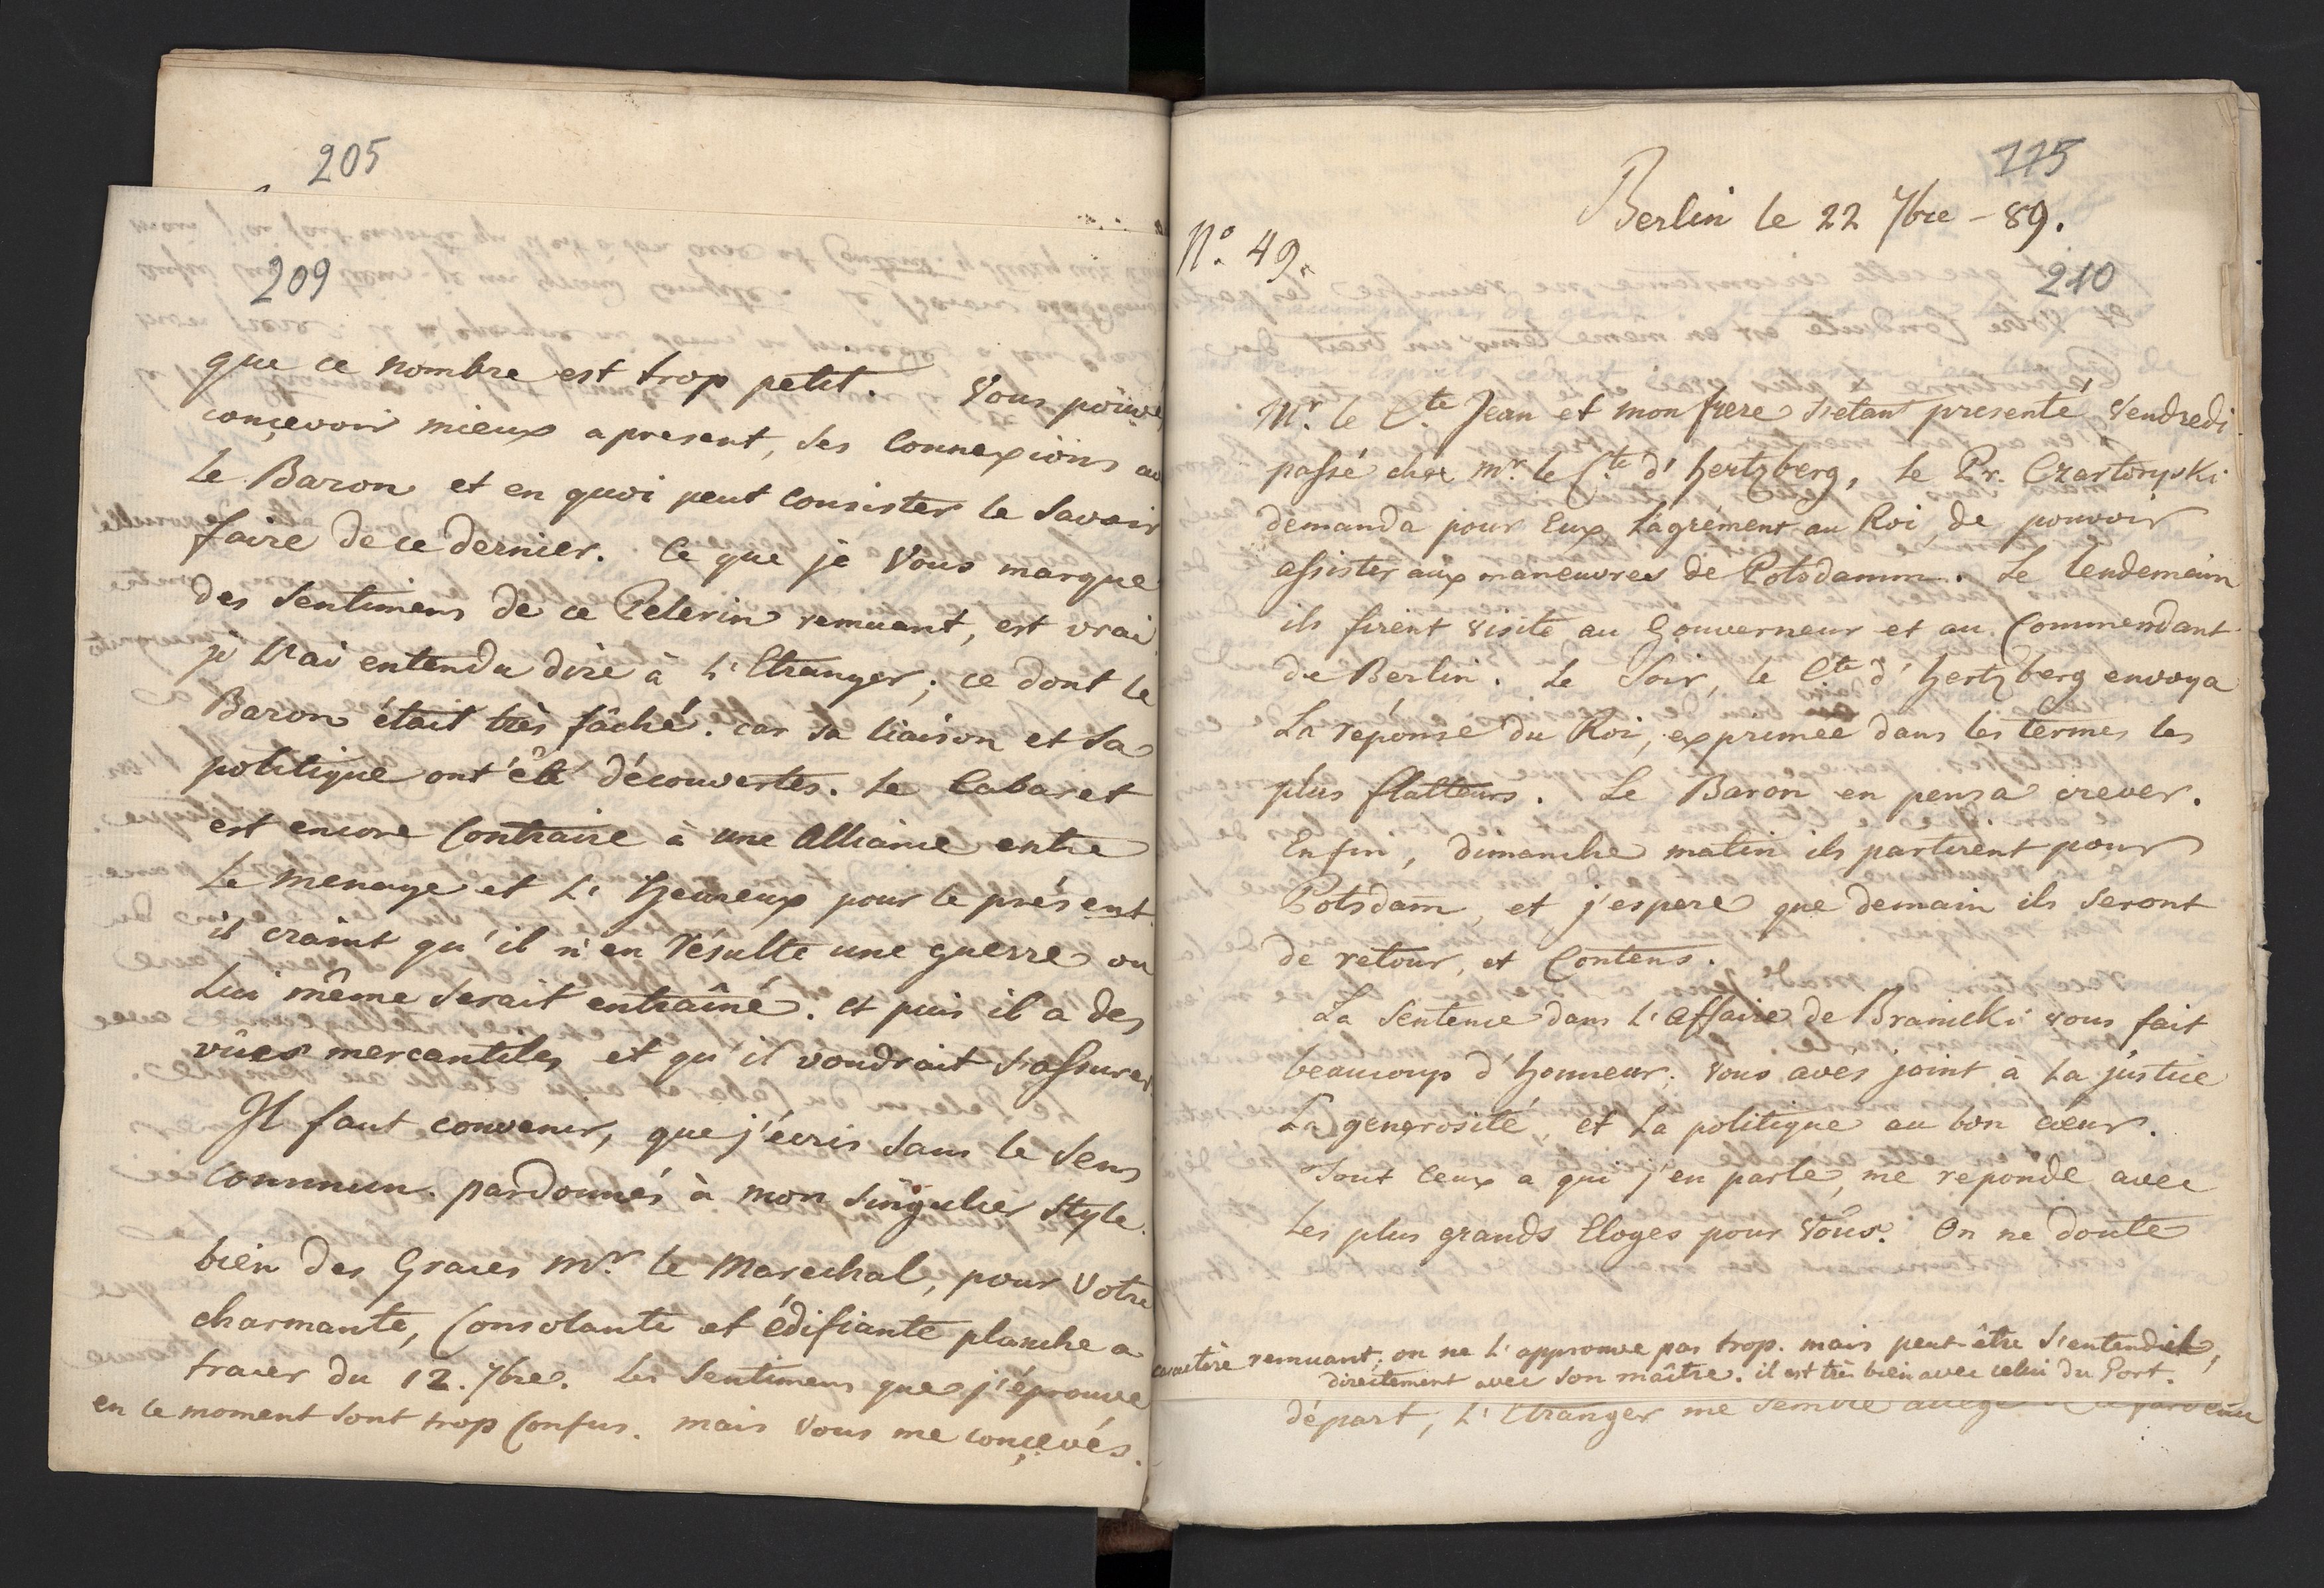 205
209
que ce nombre est trop petit. Vous pouvé
conçevoir mieux apresent, ses Connexions av
le Baron et en quoi peut consister le Savoir
faire de ce dernier. Ce que je Vous marque
des Sentimens de ce Pelerin remuant, est vrai
je l'ai entendu dire à L'Etranger; ce dont le
Baron était très fâché. car sa liaison et sa
politique ont été découvertes. Le Cabaret
est encore Contraire à une Alliance entre
le menage et L'heureux pour le présent.
il craint qu'il n'en résulte une guerre ou
lui même serait entraîné. et puis il a des
vües mercantiles et qu'il voudrait s'assurer.
Il faut convenir, que j'écris sans le Sens
commun. pardonnés à mon singulier Style.
bien des Graces Mr. le Marechal, pour Votre
charmante, Consolante et édifiante planche a
tracer du 12. 7bre. Les Sentimens que j'éprouve
en ce moment sont trop Confus. mais Vous me conçevés.
115
Berlin le 22 7bre - 89.
No. 49.
210
Mr. le Cte. Jean et mon frere s'etant presenté Vendredi
passé chez Mr. le Cte. d'Hertzberg, le Pr. Czartoryski
demanda pour Eux l'agrément au Roi, de pouvoir
assister aux manœuvres de Potsdamm. Le lendemain
ils firent visite au Gouverneur et au Commendant
de Berlin. Le Soir, le Cte d'Hertzberg envoya
La réponse du Roi, exprimée dans les termes les
plus flatteurs. Le Baron en pensa crever.
Enfin, dimanche matin ils partirent pour
Potsdam, et j'espere que demain ils seront
de retour, et Contens.
La Sentence dans l'affaire de Branicki vous fait
beaucoup d'honneur; vous avés joint à la justice
La generosité, et la politique au bon cœur.
Tout Ceux a qui j'en parle, me reponde avec
les plus grands Eloges pour Vous. On ne doute
caractère remuant; on ne l'approuve pas trop. mais peut-être s'entend-il,
directement avec Son maître. il est très bien avec celui du Port.
départ; L'Etranger me semble